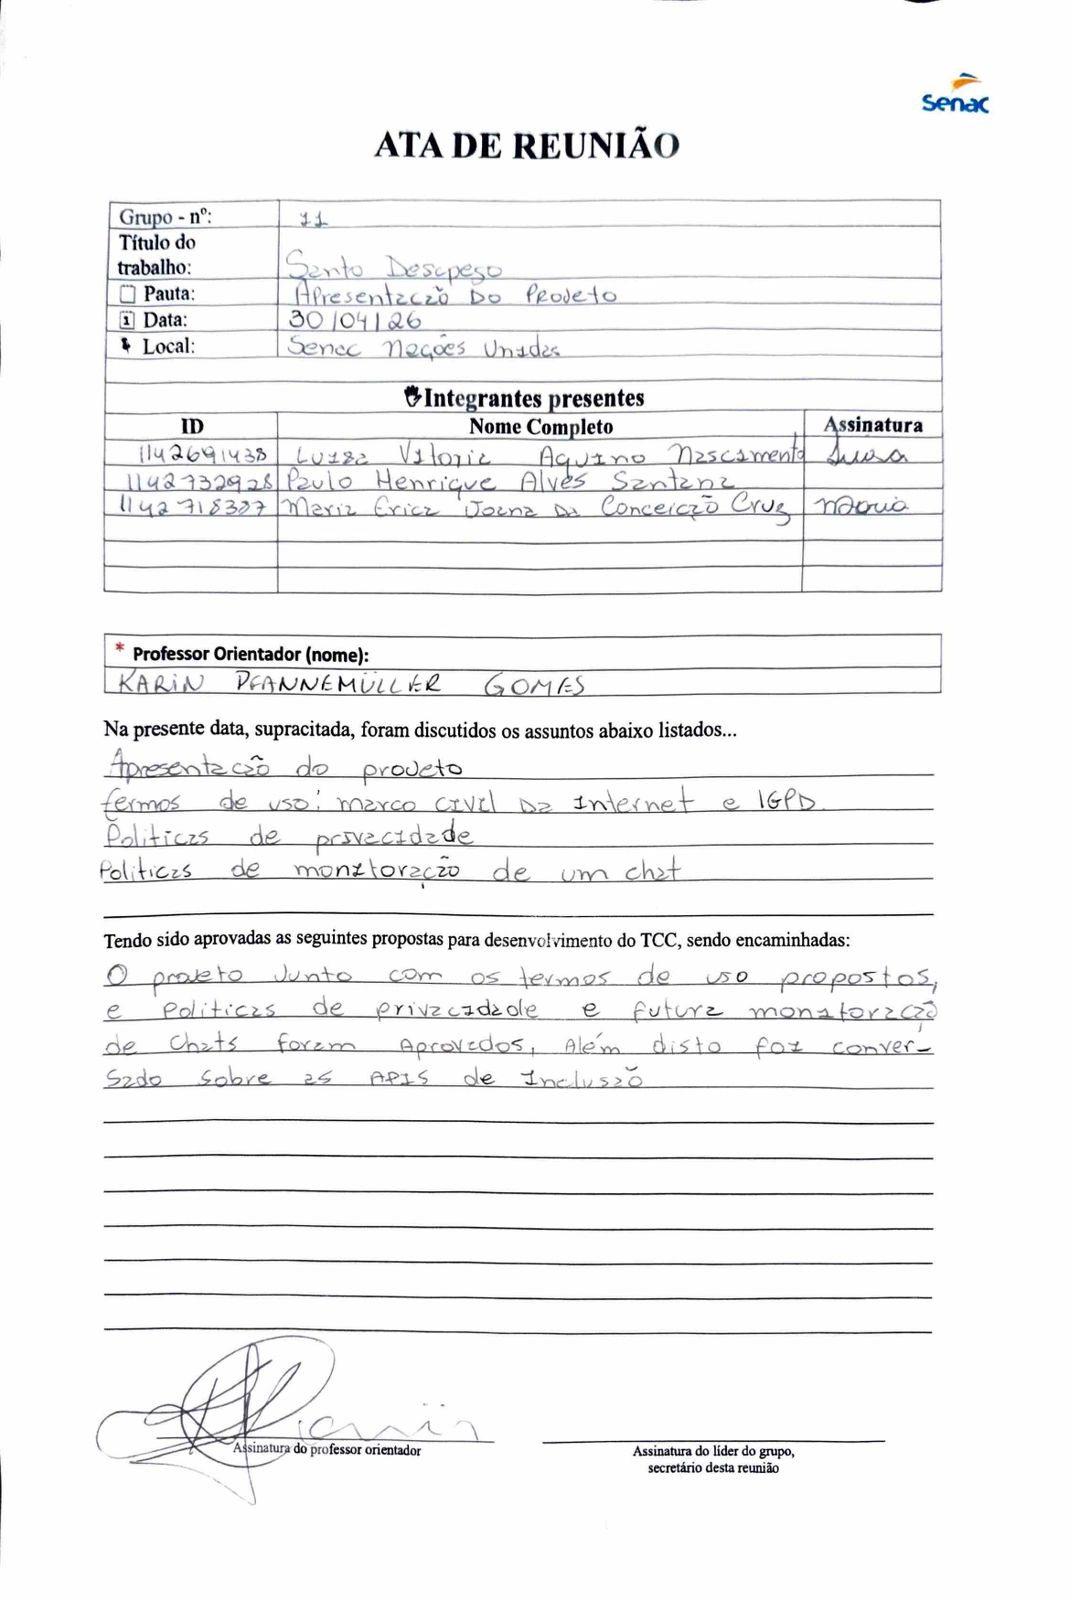 Senac
ATA DE REUNIÃO
Grupo - nº: 11
Título do
trabalho: Santo Desapego
Pauta: Apresentação Do Projeto
Data: 30/04/26
Local: Senac Nações Unidas
Integrantes presentes
ID Nome Completo Assinatura
1142691438 Luisa Vitoria Aquino Nascimento Luisa
1142732928 Paulo Henrique Alves Santana
1142718387 Maria Erica Joana Da Conceição Cruz Maria
* Professor Orientador (nome):
KARIN PFANNEMÜLLER GOMES
Na presente data, supracitada, foram discutidos os assuntos abaixo listados...
Apresentação do projeto
termos de uso: marco civil Da Internet e LGPD
Politicas de privacidade
Politicas de monitoração de um chat
Tendo sido aprovadas as seguintes propostas para desenvolvimento do TCC, sendo encaminhadas:
O projeto Junto com os termos de uso propostos,
e Politicas de privacidade e futura monitoração
de Chats foram Aprovados, Além disto foi conver-
Sado sobre as APIS de Inclusão
Assinatura do professor orientador
Assinatura do líder do grupo,
secretário desta reunião